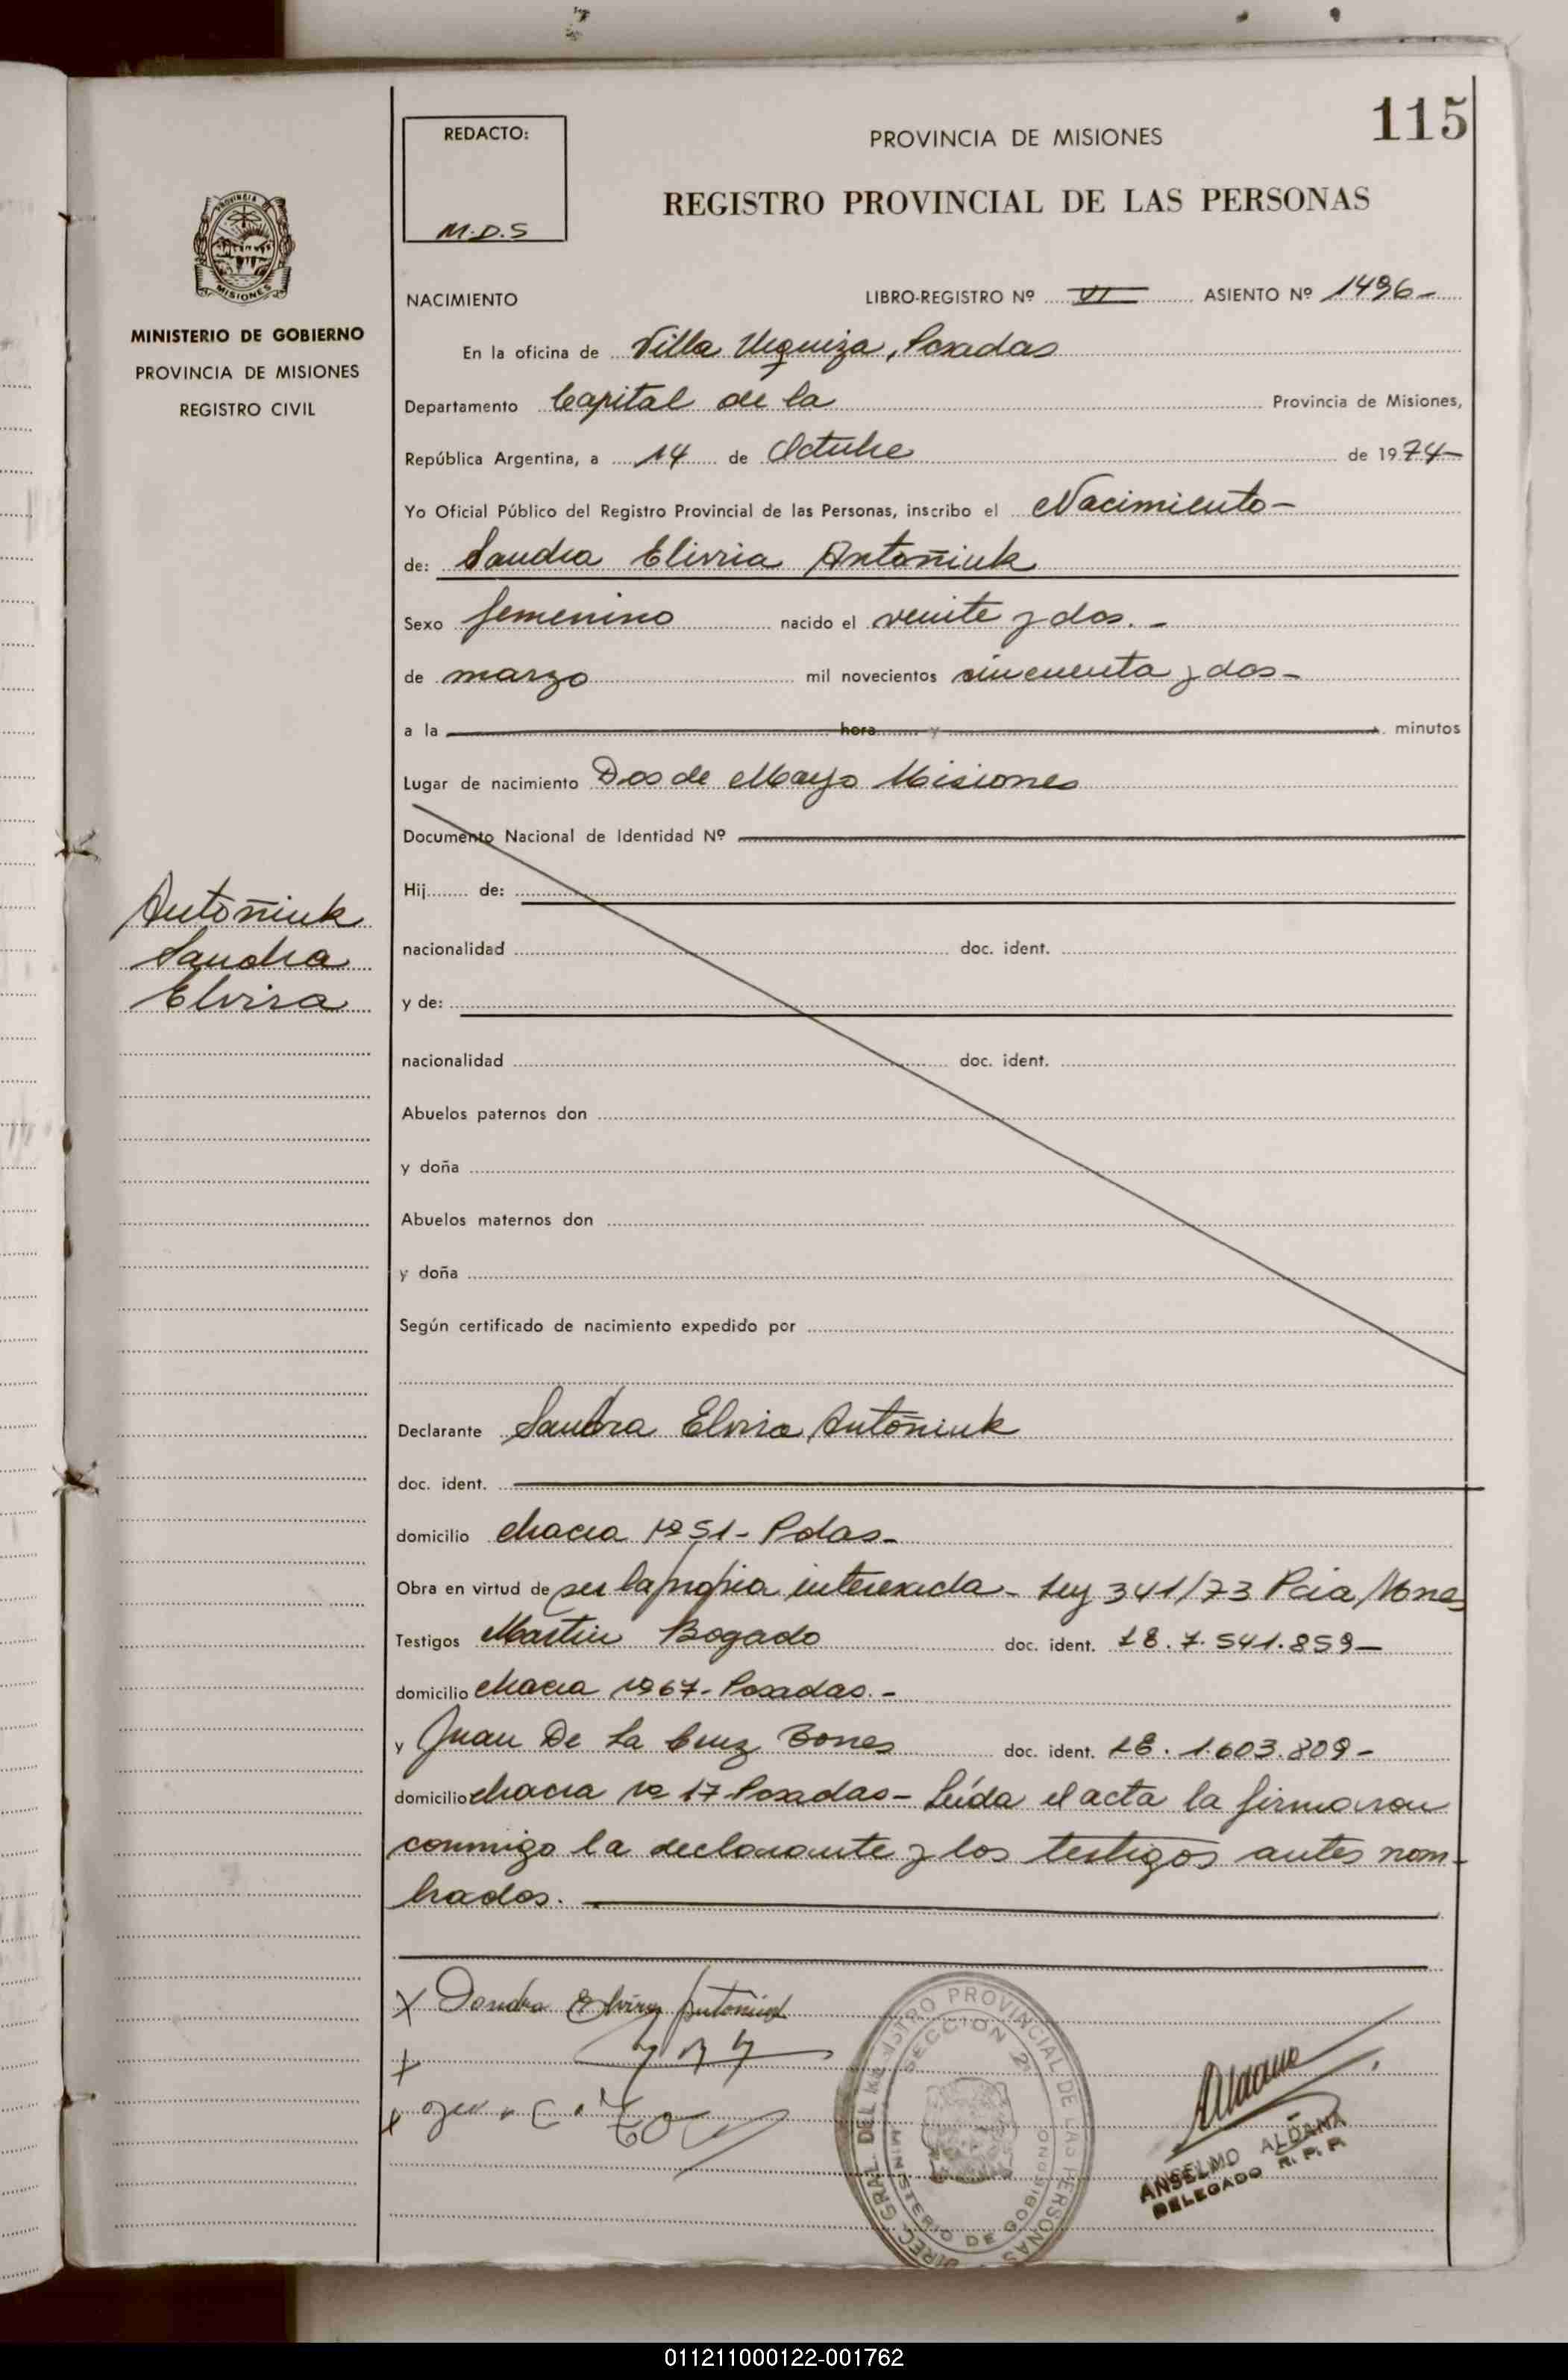 115
REDACTO:
M.D.S
PROVINCIA DE MISIONES
REGISTRO PROVINCIAL DE LAS PERSONAS
MINISTERIO DE GOBIERNO
PROVINCIA DE MISIONES
REGISTRO CIVIL
NACIMIENTO LIBRO-REGISTRO Nº VI ASIENTO Nº 1496-
En la oficina de Villa Urquiza, Posadas
Departamento Capital de la Provincia de Misiones,
República Argentina, a 14 de Octubre de 1974-
Yo Oficial Público del Registro Provincial de las Personas, inscribo el Nacimiento-
de: Sandra Elivria Antoñiuk
Sexo femenino nacido el veinte y dos.-
de marzo mil novecientos cincuenta y dos-
a la hora y minutos
Lugar de nacimiento Dos de Mayo Misiones
Documento Nacional de Identidad Nº
Hij de:
nacionalidad doc. ident.
y de:
nacionalidad doc. ident.
Abuelos paternos don
y doña
Abuelos maternos don
y doña
Según certificado de nacimiento expedido por
Antoñiuk
Sandra
Elvira
Declarante Sandra Elvira Antoñiuk
doc. ident.
domicilio chacra Nº 51- Pdas-
Obra en virtud de ser la propia interesada- Ley 341/73 Pcia/Mnes
Testigos Martin Bogado doc. ident. L8.7.541.859-
domicilio chacra Nº 67- Posadas.-
y Juan De La Cruz Bones doc. ident. L8.1.603.809-
domicilio chacra Nº 17 Posadas- Leída el acta la firmaron
conmigo la declarante y los testigos antes nom-
brados.
x Sandra Elvira Antoñiuk
x
x
DIREC. GRAL. DEL REGISTRO PROVINCIAL DE LAS PERSONAS
SECCION 2ª
MINISTERIO DE GOBIERNO
Aldana
ANSELMO ALDANA
DELEGADO R. P. P.
011211000122-001762